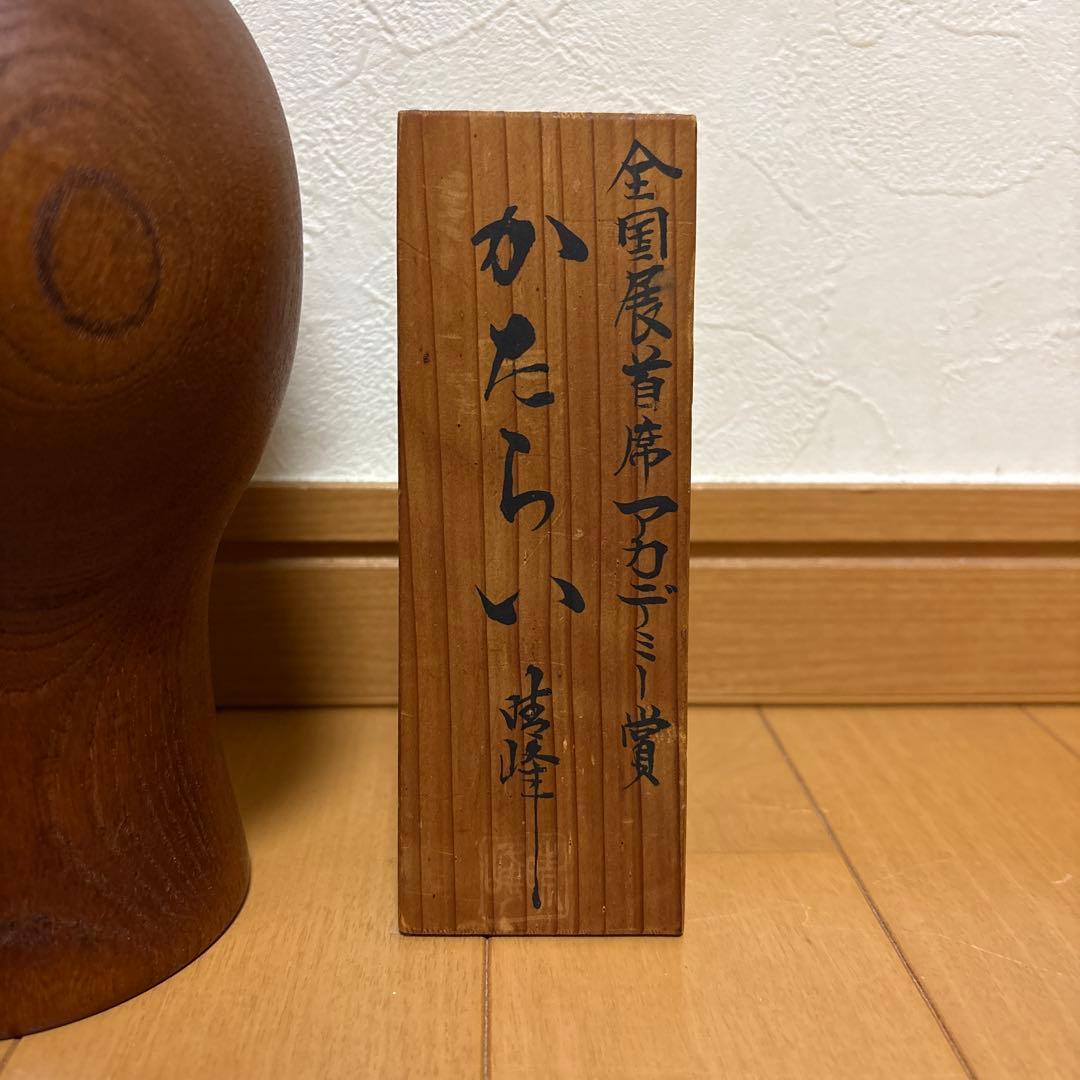 全国展首席アカデミー賞
かたらい
晴峰